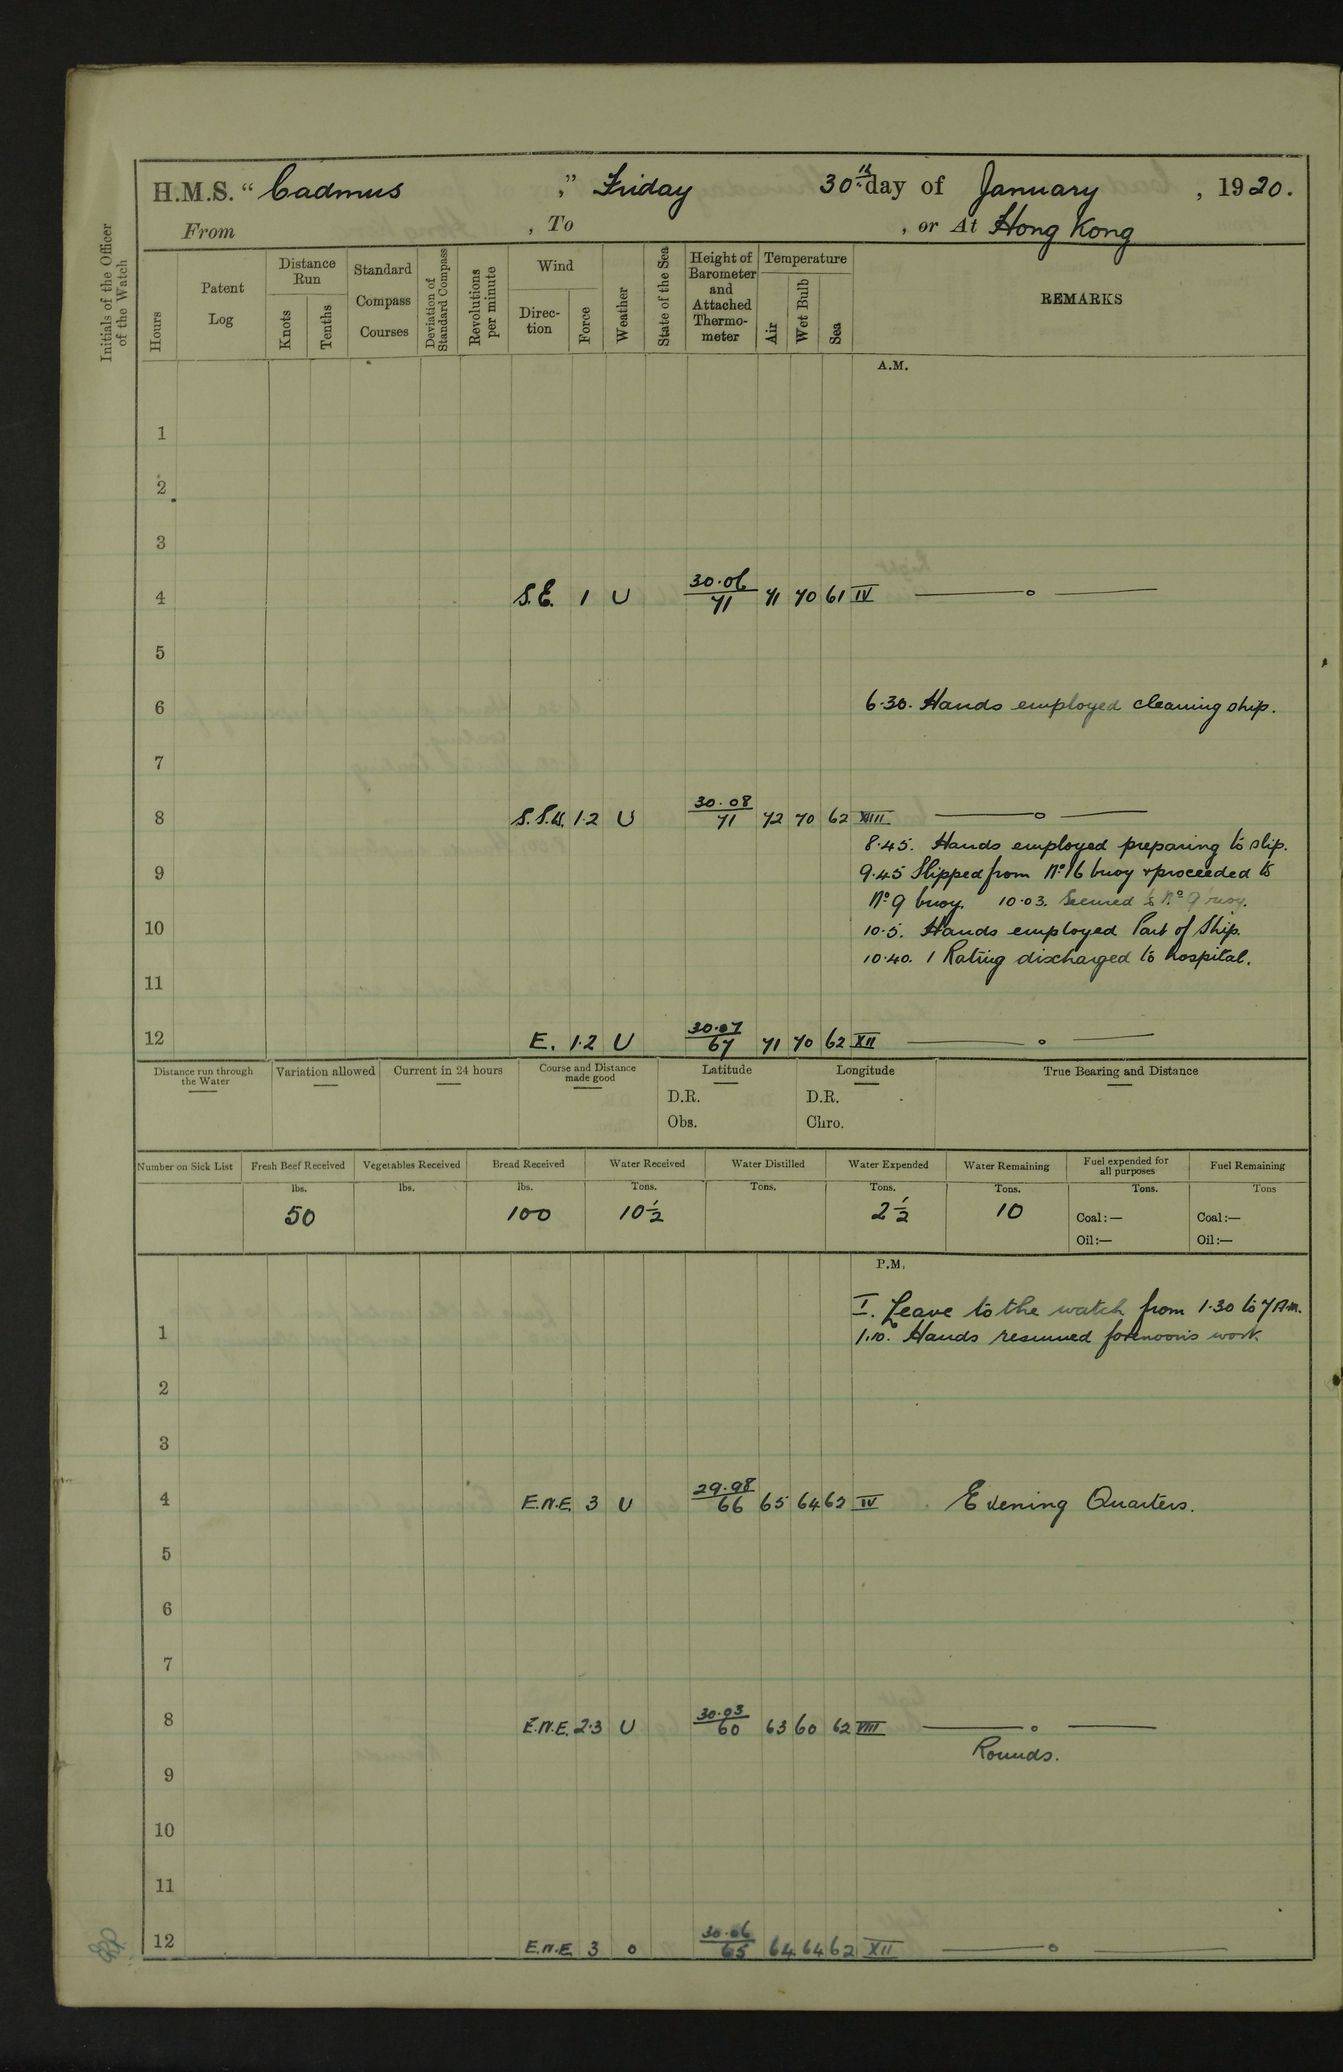 H.M.S. “ Cadmus ,” Friday 30th day of January , 1920.
From , To , or At Hong Kong
Initials of the Officer of the Watch
Hours
Patent Log
Distance Run
Knots
Tenths
Standard Compass Courses
Deviation of Standard Compass
Revolutions per minute
Wind
Direc-tion
Force
Weather
State of the Sea
Height of Barometer and Attached Thermo-meter
Temperature
Air
Wet Bulb
Sea
REMARKS
A.M.
1
2
3
4 S.E. 1 U 30.06 71 71 70 61 IV ——o——
5
6 6.30. Hands employed cleaning ship.
7
8 S.S.W. 1.2 U 30.08 71 72 70 62 VIII ——o——
8.45. Hands employed preparing to slip.
9 9.45 Slipped from No 16 buoy & proceeded to
No 9 buoy. 10.03. Secured to No 9 buoy.
10 10.5. Hands employed Part of Ship.
10.40. 1 Rating discharged to hospital.
11
12 E. 1.2 U 30.07 67 71 70 62 XII ——o——
Distance run through the Water
Variation allowed
Current in 24 hours
Course and Distance made good
Latitude
D.R.
Obs.
Longitude
D.R.
Chro.
True Bearing and Distance
Number on Sick List Fresh Beef Received Vegetables Received Bread Received Water Received Water Distilled Water Expended Water Remaining Fuel expended for all purposes Fuel Remaining
lbs. lbs. lbs. Tons. Tons. Tons. Tons. Tons. Tons
50 100 10 1/2 2 1/2 10 Coal:— Coal:—
Oil:— Oil:—
P.M.
I. Leave to the watch from 1.30 to 7 A.m.
1 1.10. Hands resumed forenoons work.
2
3
4 E.N.E. 3 U 29.98 66 65 64 62 IV Evening Quarters.
5
6
7
8 E.N.E. 2.3 U 30.03 60 63 60 62 VIII ——o——
Rounds.
9
10
11
12 E.N.E. 3 o 30.06 65 64 64 62 XII ——o——